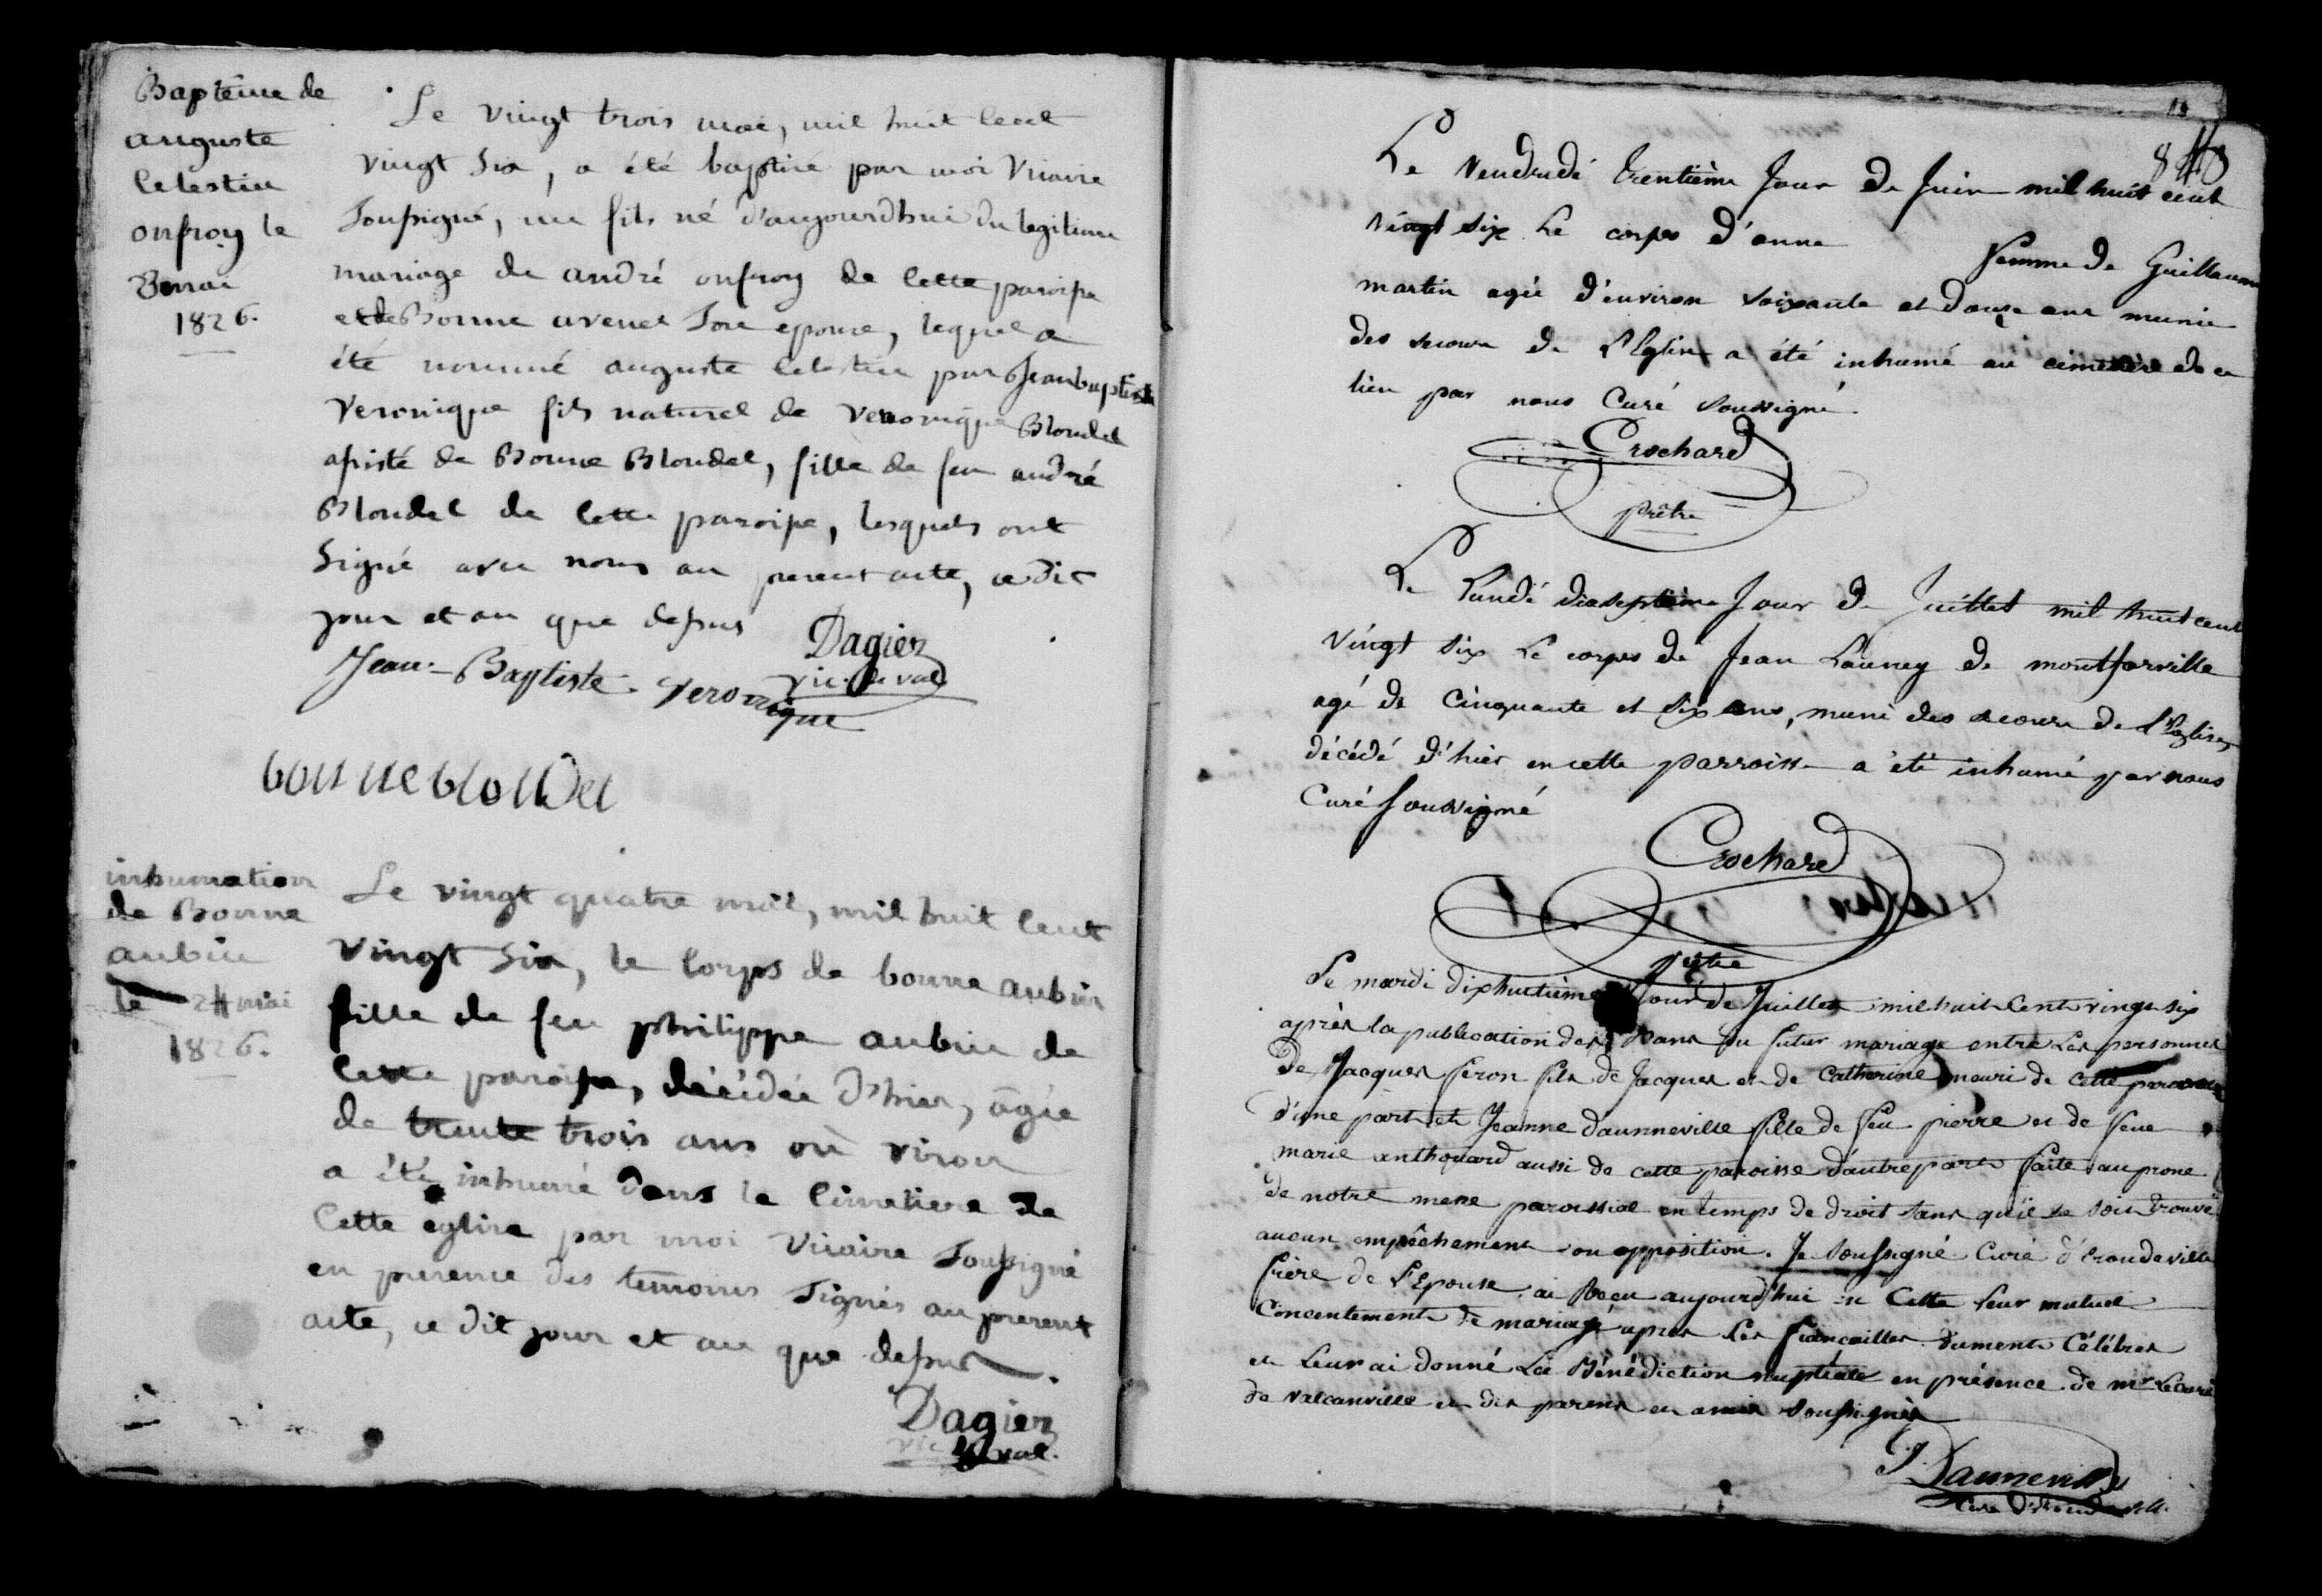 Baptême de
auguste
Celestin
onfroy le
23 mai
1826.
Le vingt trois mai, mil huit Cent
vingt Six, a été baptisé par moi Vicaire
Soussigné, un fils né d'aujourdhui du legitime
mariage de andré onfroy de Cette paroisse
et de Bonne avenel Son epouse, lequel a
été nommé auguste Celestin par Jean baptiste
Veronique fils naturel de Veronique Blondel
assisté de Bonne Blondel, fille de feu andré
Blondel de Cette paroisse, lesquels ont
Signé avec nous au present acte, ce dit
jour et an que dessus
Dagier
vic. de val
Jean-Baptiste Veronique
bonne blondel
inhumation
de Bonne
aubin
le 24 mai
1826.
Le vingt quatre mai, mil huit Cent
vingt Six, le Corps de bonne aubin
fille de feu philippe aubin de
Cette paroisse, décédée d'hier, âgée
de trente trois ans où viron
a été inhumé dans le Cimetiere de
Cette église par moi Vicaire Soussigné
en presence des temoins Signés au present
acte, ce dit jour et an que dessus.
Dagier
vic de val.
18
8
Le Vendredi trentième Jour de Juin mil huit cent
vingt six Le corps d'anne femme de Guillaume
martin agée d'environ soixante et douze ans munie
des secours de l'Eglise a été inhumé au cimetière de ce
lieu par nous Curé soussigné.
Crochard
prêtre
Le Lundi dixseptième Jour de Juillet mil huit cent
Vingt six Le corps de Jean Launey de montfarville
agé de Cinquante et six ans, muni des secours de l'Eglise,
décédé d'hier en cette parroisse a été inhumé par nous
Curé soussigné
Crochard
prêtre
Le mardi dixhuitième Jour de Juillet mil huit Cent vingt six
après la publication des Bans du futur mariage entre Les personnes
De Jacques feron fils de Jacques et de Catherine mouri de Cette paroisse
d'une part et Jeanne Daunneville fille de feu pierre et de feue
marie anthouard aussi de cette paroisse d'autre part faite au prone
de notre messe paroissial en temps de droit sans qu'il se soit trouvé
aucun empêchement ou opposition. Je Soussigné Curé d'Eroudeville
frère de l'Epouse, ai Recu aujourd'hui Cette leur mutuel
Concentement de mariage après Les fiançailles dument Célébrés
et Leur ai donné La Bénédiction nuptiale en présence de mr Le Curé
de Valcanville et des parens et amis soussignés
Daunneville
Curé d'Eroudeville